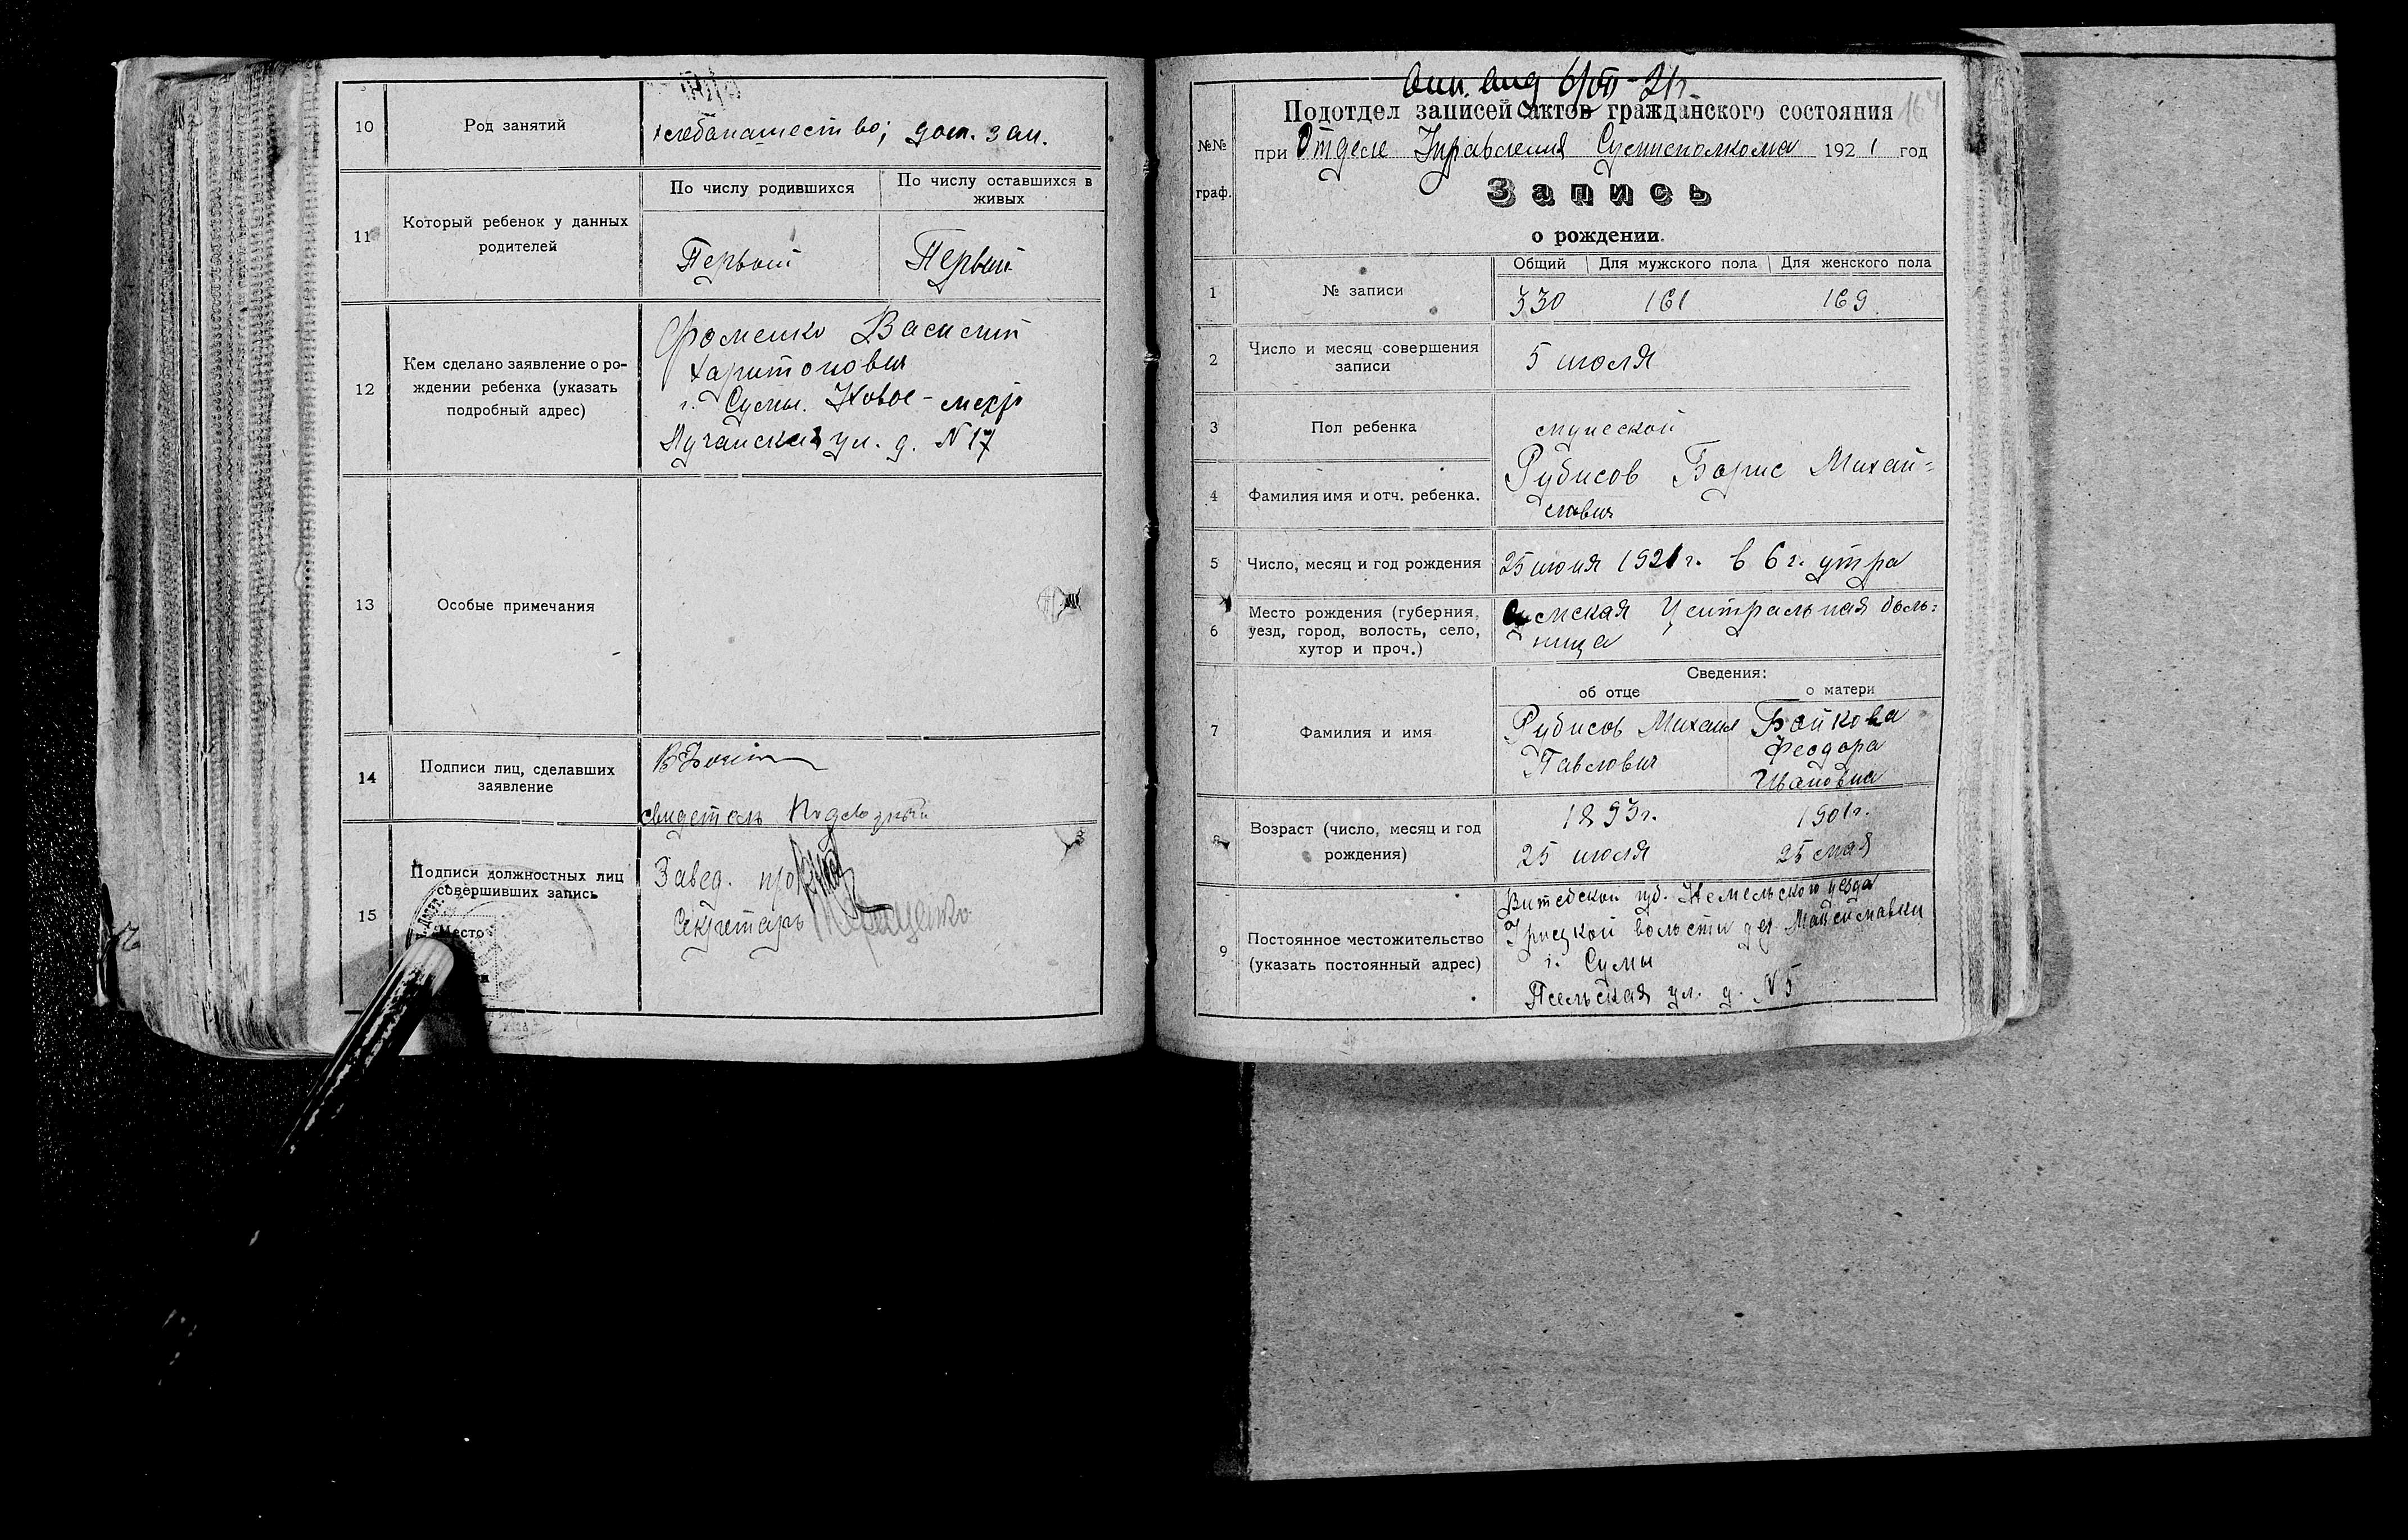 10
Род занятий
хлебопашество; дом. зан.
11
Который ребенок у данных
родителей
По числу родившихся
По числу оставшихся в
живых
Первый
Первый
12
Кем сделано заявление о ро-
ждении ребенка (указать
подробный адрес)
Фоменко Василий
Харитонович
г. Сумы. Новое-место
Лучанская ул. д. N 17
13
Особые примечания
14
Подписи лиц, сделавших
заявление
свидетель
15
Подписи должностных лиц
совершивших запись
Место
Завед.
Секретарь
Подотдел записей актов гражданского состояния
№№
граф.
при Отделе Управления Сумисполкома 1921 год
Запись
о рождении.
Общий
Для мужского пола
Для женского пола
1
№ записи
330
161
169
2
Число и месяц совершения
записи
5 июля
3
Пол ребенка
мужской
4
Фамилия имя и отч. ребенка.
Рубисов Борис Михай=
лович
5
Число, месяц и год рождения
25 июня 1921 г. в 6 ч. утра
6
Место рождения (губерния,
уезд, город, волость, село,
хутор и проч.)
Сумская Центральная боль=
ница
Сведения:
об отце
о матери
7
Фамилия и имя
Рубисов Михаил
Павлович
Бойкова
Феодора
Ивановна
8
Возраст (число, месяц и год
рождения)
1893 г.
25 июля
1901 г.
25 мая
9
Постоянное местожительство
(указать постоянный адрес)
Витебской губ. Немельского уезда
волости дер.
г. Сумы
Псельская ул. д. N 5